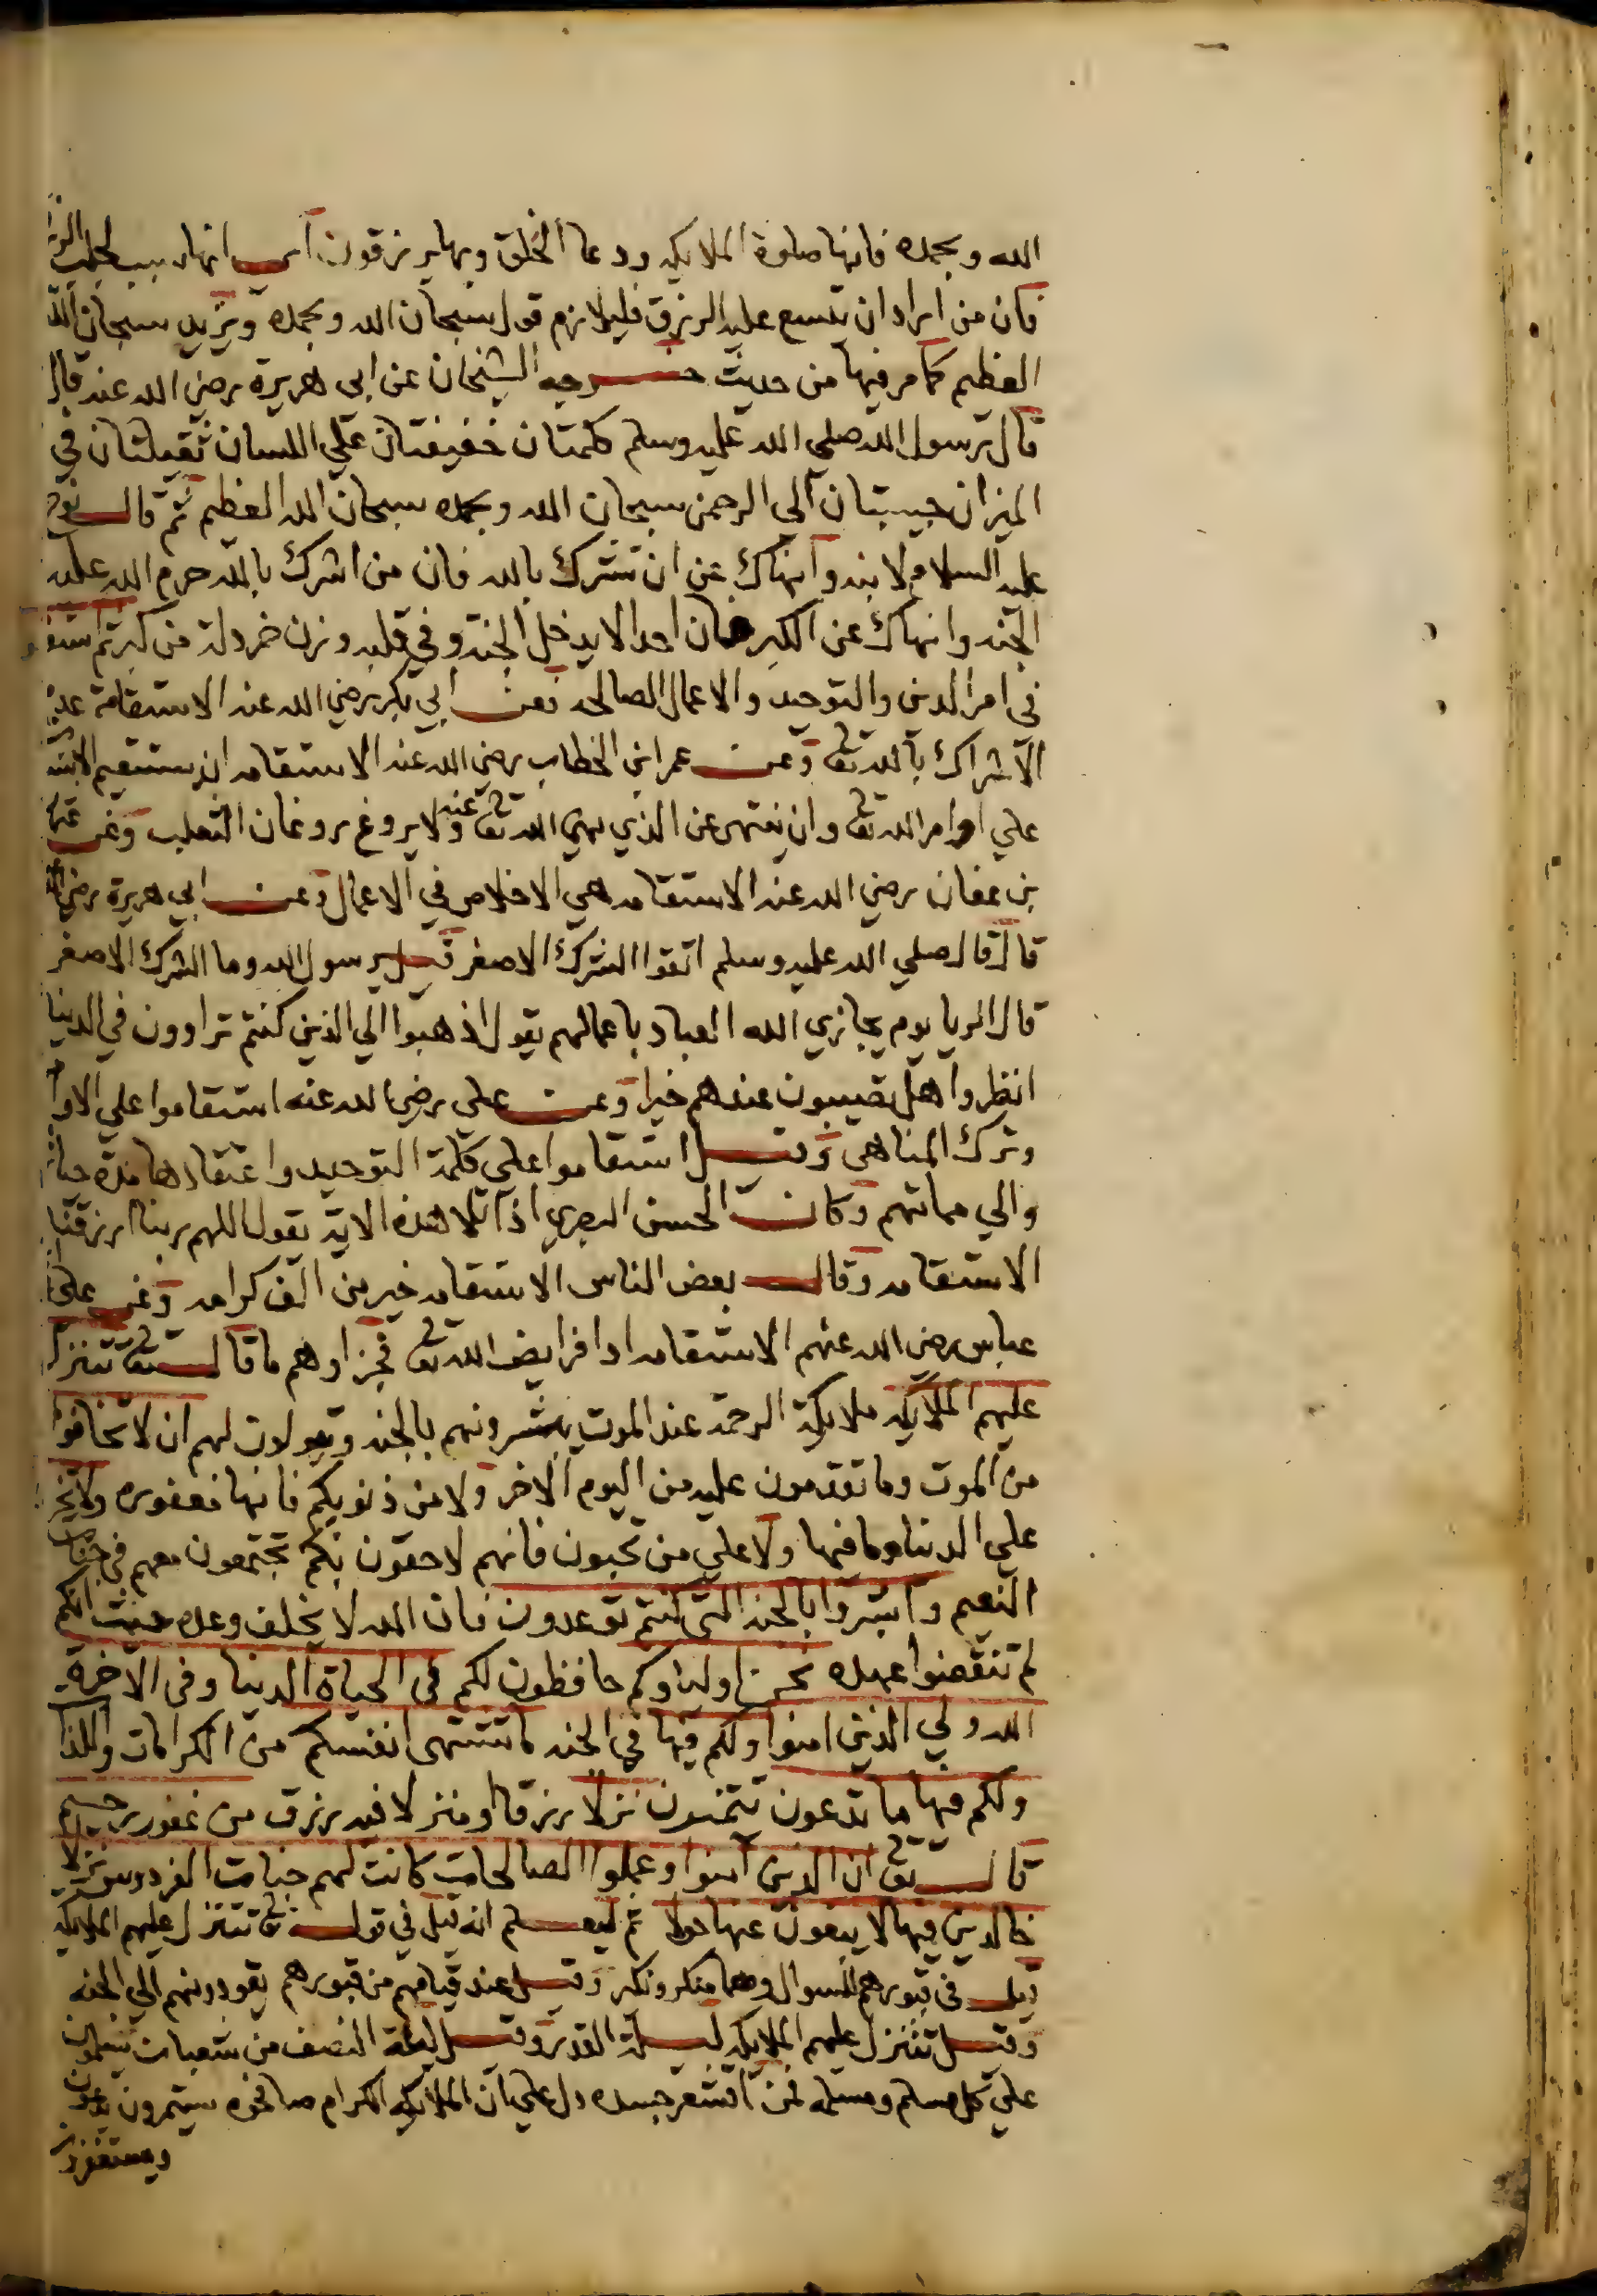 الله وبحمده فانها صلوة الملايكه ودعا الخلق وبها يرزقون اي انها سبب لجلب الرزق
فان من اراد ان يتسع عليه الرزق فليلازم قول سبحان الله وبحمده ويزيد سبحان الله
العظيم كما مر فيها من حديث خرجه الشيخان عن ابي هريرة رضي الله عنه قال
قال رسول الله صلي الله عليه وسلم كلمتان خفيفتان علي اللسان ثقيلتان في
الميزان حبيبتان الي الرحمن سبحان الله وبحمده سبحان الله العظيم ثم قال نوح
عليه السلام لابنه وانهاك عن ان تشرك بالله فان من اشرك بالله حرم الله عليه
الجنه وانهاك عن الكبر فان احدا لا يدخل الجنة وفي قلبه وزن خردلة من كبر ثم استقاموا
في امر الدين والتوحيد والاعمال الصالحه فعن ابي بكر رضي الله عنه الاستقامة عدم
الاشراك بالله تعٰ وعن عمر ابن الخطاب رضي الله عنه الاستقامه ان يستقيم الانسان
علي اوامر الله تعٰ وان ينتهي عن الذي نهي الله تعٰ عنه ولا يروغ روغان الثعلب وعن عثمان
بن عفان رضي الله عنه الاستقامه هي الاخلاص في الاعمال وعن ابي هريرة رضي الله عنه
قال قال صلي الله عليه وسلم اتقوا الشرك الاصغر قيل يرسول الله وما الشرك الاصغر
قال الريا يوم يجازي الله العباد باعمالهم يقول اذهبوا الي الذين كنتم تراوون في الدنيا
انظروا هل تصيبون عندهم خيرا وعن علي رضي الله عنه استقاموا علي الاوامر
وترك المناهي وقيل استقاموا علي كلمة التوحيد واعتقادها مدة حياتهم
والي مماتهم وكان الحسن البصري اذا تلا هذه الاية يقول اللهم ربنا ارزقنا
الاستقامه وقال بعض الناس الاستقامه خير من الف كرامه وعن علي ابن
عباس رضي الله عنهم الاستقامه ادا فرايض الله تعٰ فجزاوهم ما قال تعٰ تتنزل
عليهم الملايكه ملايكة الرحمة عند الموت يبشرونهم بالجنه ويقولون لهم ان لا تخافوا
من الموت وما تقدمون عليه من اليوم الاخر ولا من ذنوبكم فانها مغفوره ولا تحزنوا
علي الدنيا وما فيها ولا علي من تحبون فانهم لاحقون بكم تجتمعون معهم في جنات
النعيم وابشروا بالجنه التي كنتم توعدون فان الله لا يخلف وعده حيث انكم
لم تنقضوا عهده نحن اولياوكم حافظون لكم في الحياة الدنيا وفي الاخرة
الله ولي الذين امنوا ولكم فيها في الجنه ما تشتهي انفسكم من الكرامات واللذات
ولكم فيها ما تدعون تتمنون نزلا رزقا او منزلا فيه رزق من غفور رحيم
قال تعٰ ان الذين آمنوا وعملوا الصالحات كانت لهم جنات الفردوس نزلا
خالدين فيها لا يبغون عنها حولا ثم ليعلم انه قيل في قوله تعٰ تتنزل عليهم الملايكه
قيل في قبورهم للسوال وهما منكر ونكير وقيل عند قيامهم من قبورهم يقودونهم الي الجنه
وقيل تتنزل عليهم الملايكه ليلة القدر وقيل ليلة النصف من شعبان يسلمون
علي كل مسلم ومسلمه فمن اقشعر جسده دل علي ان الملايكه الكرام صافحوه يستمرون يدعون
ويستغفرون